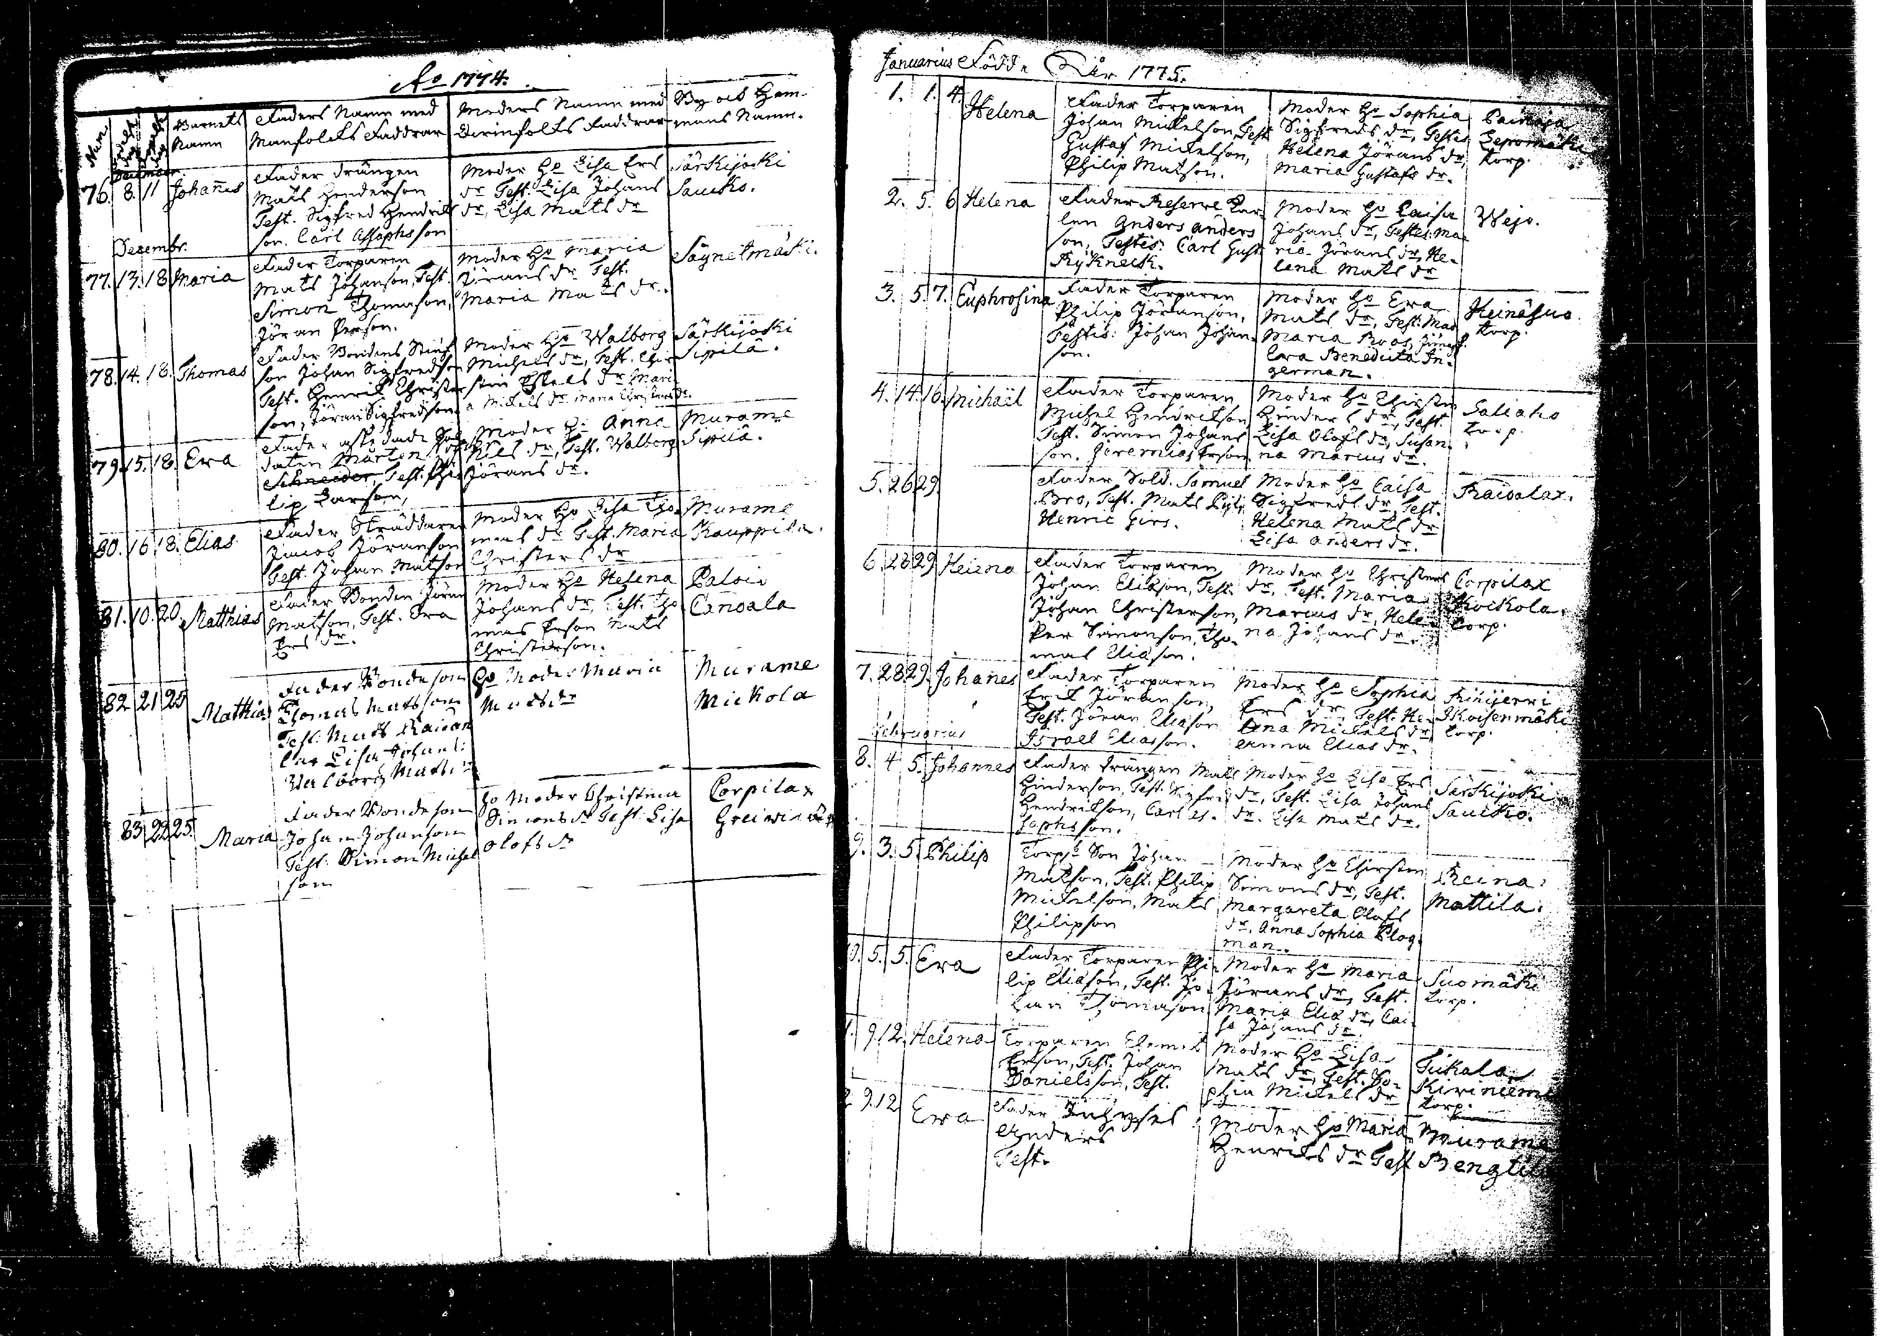 Ao 1774.
Num. Barnets Namn
Faders Namn med Manfolcks Faddrar
Moders Namn med Qvinfolks Faddrar
By och Hemmans Namn.
December.
76. 8. 11 Johañes
Fader Drängen
Mats Henderson
Test. Sigfred Hendrik
son. Carl Assaphsson
Moder Ho Lisa Ers
dr Test. Lisa Johans
dr, Lisa Mats dr
Särkijocki
Saucko.
Decembr.
77. 13. 18 Maria
Fader Torparen
Mats Johanson, Test.
Simon Thomason,
Jöran Person.
Moder Ho Maria
Jörans dr Test.
Maria Mats dr.
Säynetmäcki.
78. 14. 18. Thomas
Fader Bondens
son Johan Sigfredson
Test. Henric Christer
son, Jöran Sigfredson
Moder Ho Walborg
Michels dr, Test. Chir
stin Eskels dr Mari
a Mickels dr Maria Christers dr.
Särkijocki
Sipilä.
79. 15. 18. Ewa
Fader afskedade Sol
daten Mårten
Schneider, Test. Phi
lip Larson,
Moder Ho Anna
Nils dr, Test. Walborg
Jörans dr.
Murame
Sipilä.
80. 16. 18. Elias
Fader Skräddaren
Jacob Jöranson
Test. Johan Matson
Moder Ho Lisa Tho
mas dr Test. Maria
Christers dr
Murame
Kauppila.
81. 10. 20. Matthias
Fader Bonden Jöran
Matson, Test. Ewa
Ers dr.
Moder Ho Helena
Johans dr, Test. Tho
mas Erson Mats
Christerson.
Palois
Canoala
82 21 25 Mathias
Fader Bondeson
Thomas Matsson
Test. Mats
Lisa Johans
Walborg Mats dr
Ho Moder Maria
Mats dr
Murame
Mickola
83 22 25. Maria
Fader Bondeson
Johan Johanson
Test. Simon Michel
son
Ho Moder Christina
Simons dr Test. Lisa
Olofs dr
Corpilax
Januarius Födde År 1775.
1. 1. 4. Helena
Fader Torparen
Johan Mickelson, Test
Gustaf Mickelson,
Philip Matson.
Moder Ho Sophia
Sigfreds dr, Testes
Helena Jörans dr,
Maria Gustafs dr.
Lepomäki
torp.
2. 5. 6 Helena
Fader Reserve Kar
len Anders Anders
son, Testis: Carl Gust.
Moder Ho Caisa
Johans dr, Testes: Ma
ria Jörans dr, He-
lena Mats dr
Wejo.
3. 5. 7. Euphrosina
Fader Torparen
Philip Jöranson,
Testis: Johan Johan
son.
Moder Ho Ewa
Mats dr, Test. Mad
Maria Roos, Jungf.
Cara Benedicta In-
german.
Heinäsuo
torp.
4. 14. 16. Michaël
Fader Torparen
Michel Hendrikson
Test. Simon Johans
son. Jeremias Erson
Moder Ho Chirstin
Hinders dr, Test.
Lisa Olofs dr, Susan
na Marcus dr.
Saliaho
torp.
5. 26 29.
Fader Sold. Samuel
Bro, Test. Mats
Henric Girs.
Moder Ho Caisa
Sigfreds dr, Test.
Helena Mats dr
Lisa Anders dr.
6. 28 29 Heizna
Fader Torparen
Johan Eliason, Test.
Johan Christerson,
Per Simonson, Tho-
mas Eliason.
Moder Ho Christers
dr, Test. Maria
Marcus dr, Hele
na Johans dr.
Corpilax
Kockola
torp.
7. 28 29. Johañes
Fader Torparen
Erik Jöranson,
Test. Jöran Eliason
Israel Eliasson.
Moder Ho Sophia
Ers dr, Test. He-
lena Michels dr
Anna Elias dr.
Koisenmäki
torp.
Februarius
8. 4 5. Johannes
Fader Drängen Mats
Hinderson, Test. Sigfrid
Hendrikson, Carl As-
sophsson.
Moder Ho Lisa Ers
dr, Test. Lisa Johans
dr. Lisa Mats dr.
Särkijocki
Saucko.
9. 3. 5. Philip
Torp. Son Johan
Matson, Test. Philip
Mickelson, Mats
Philipson
Moder Ho Chirstin
Simons dr, Test.
Margareta Olofs
dr, Anna Sophia Plog
man.
Reina
Mattila.
5. 5. Ewa
Fader Torparen Phi
lip Eliason, Test. Jo-
han Thomason
Moder Ho Maria
Jörans dr, Test.
Maria Elia dr, Cai
sa Johans dr
Suomäki
torp.
9 12. Helena
Torparen Clemet
Erson, Test. Johan
Danielsson, Test.
Moder Ho Lisa
Mats dr, Test. So-
phia Mickels dr
Tickala
Kiviniemi
torp.
9. 12 Ewa
Fader Inhyses
Anders
Test.
Moder Ho Maria
Henriks dr Test
Murame